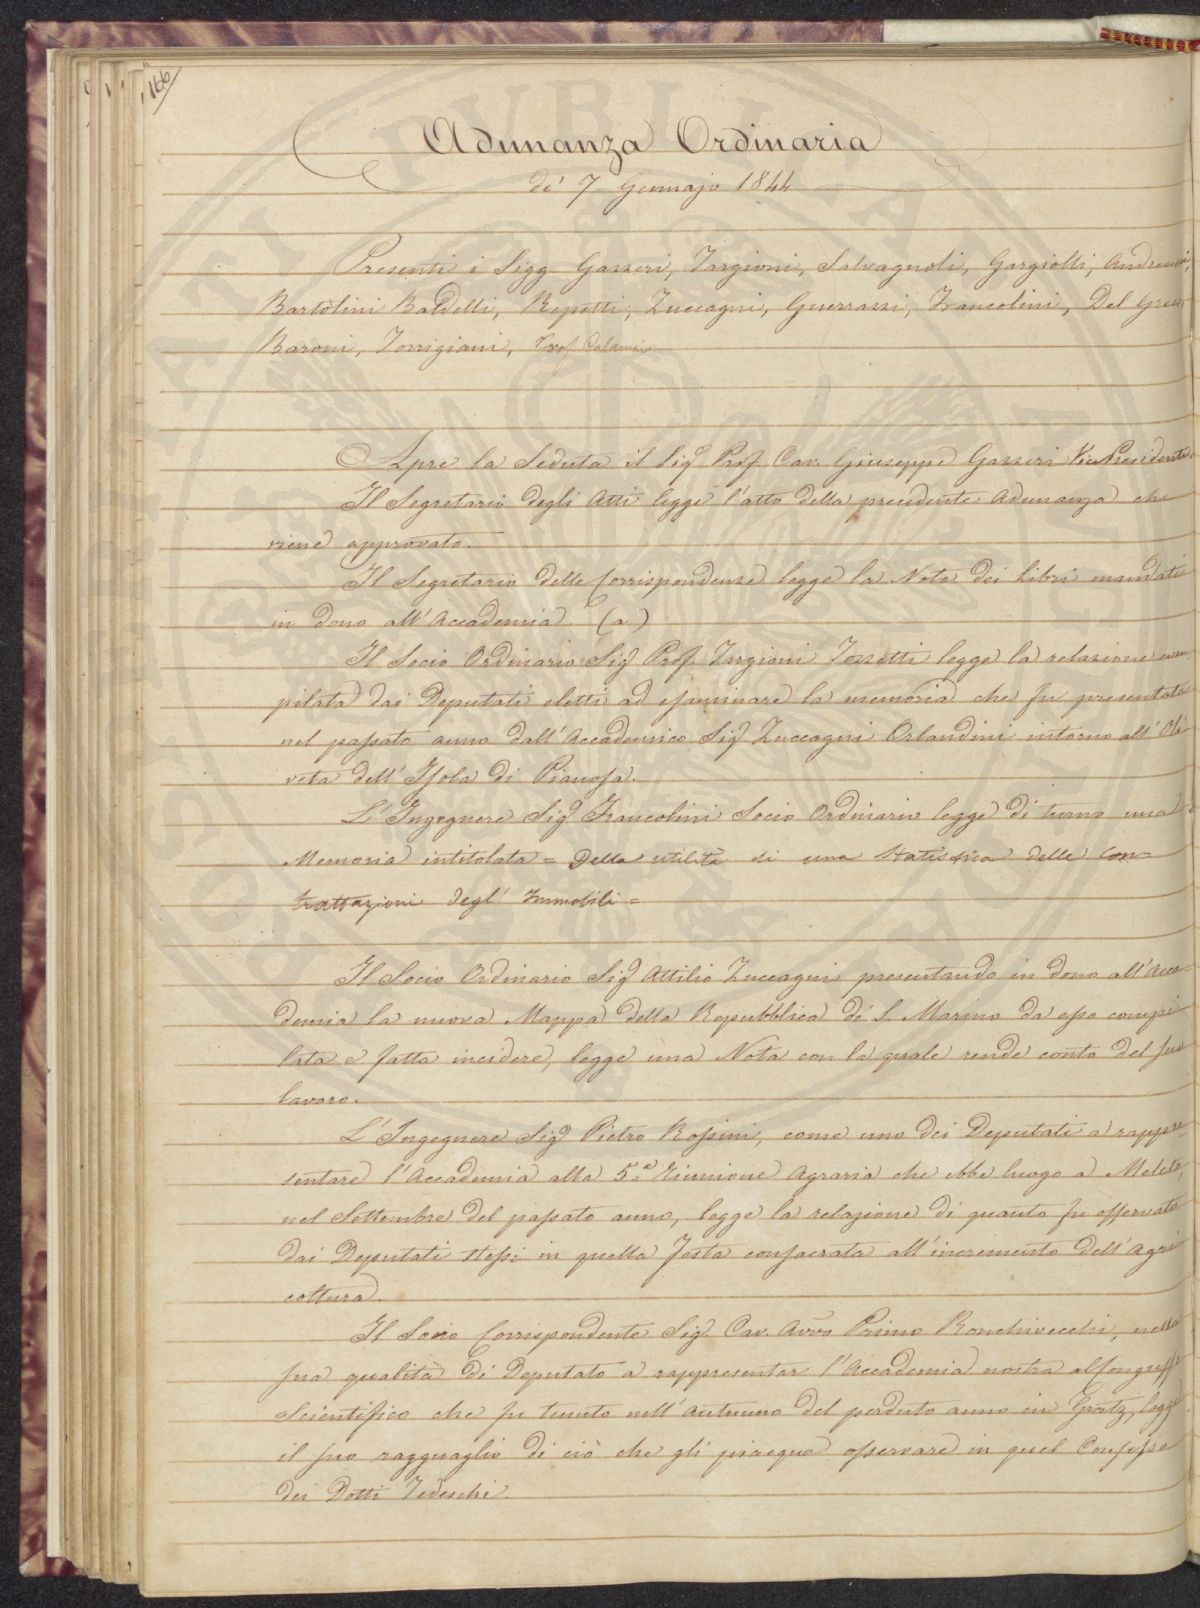 166
Adunanza Ordinaria
dè 7 Gennajo 1844
Presenti i Sigg. Gazzeri, Targioni, Salvagnoli, Gargiolli, Andreucci,
Bartolini Baldelli, Repetti, Zuccagni, Guerrazzi, Francolini, Del Greco
Baroni, Torrigiani, Prof. Calamai
Apre la Seduta il Sigr Prof. Cav. Giuseppe Gazzeri Vice Presidente.
Il Segretario degli Atti legge l'atto della precedente Adunanza che
viene approvato.
Il Segretario delle Corrispondenze legge la Nota dei Libri mandati
in dono all'Accademia. (a)
Il Socio Ordinario Sigr Prof. Targioni Tozzetti legge la relazione com-
pilata dai Deputati eletti ad esaminare la memoria che fu presentata
nel passato anno dall'Accademico Sigr Zuccagni Orlandini intorno all'Oli
veta dell'Isola di Pianosa.
L'Ingegnere Sigr Francolini Socio Ordinario legge di turno una
Memoria intitolata = Della utilità di una Statistica delle Con=
trattazioni degl' Immobili =
Il Socio Ordinario Sigr Attilio Zuccagni presentando in dono all'Acca
demia la nuova Mappa della Repubblica di S. Marino da esso compi
lata e fatta incidere, legge una Nota con la quale rende conto del suo
lavoro.
L'Ingegnere Sigr Pietro Rossini, come uno dei Deputati a rappre-
sentare l'Accademia alla 5.a riunione Agraria che ebbe luogo a Meleto,
nel Settembre del passato anno, legge la relazione di quanto fu osservato
dai Deputati stessi in quella Festa consacrata all'incremento dell'Agri
coltura.
Il Socio Corrispondente Sigr Cav. Avvo Primo Ronchivecchi, nella
sua qualità di Deputato a rappresentar l'Accademia nostra al Congresso
Scientifico che fu tenuto nell'Autunno del perduto anno in Gratz, legge
il suo ragguaglio di ciò che gli piacque osservare in quel Consesso
dei Dotti Tedeschi.